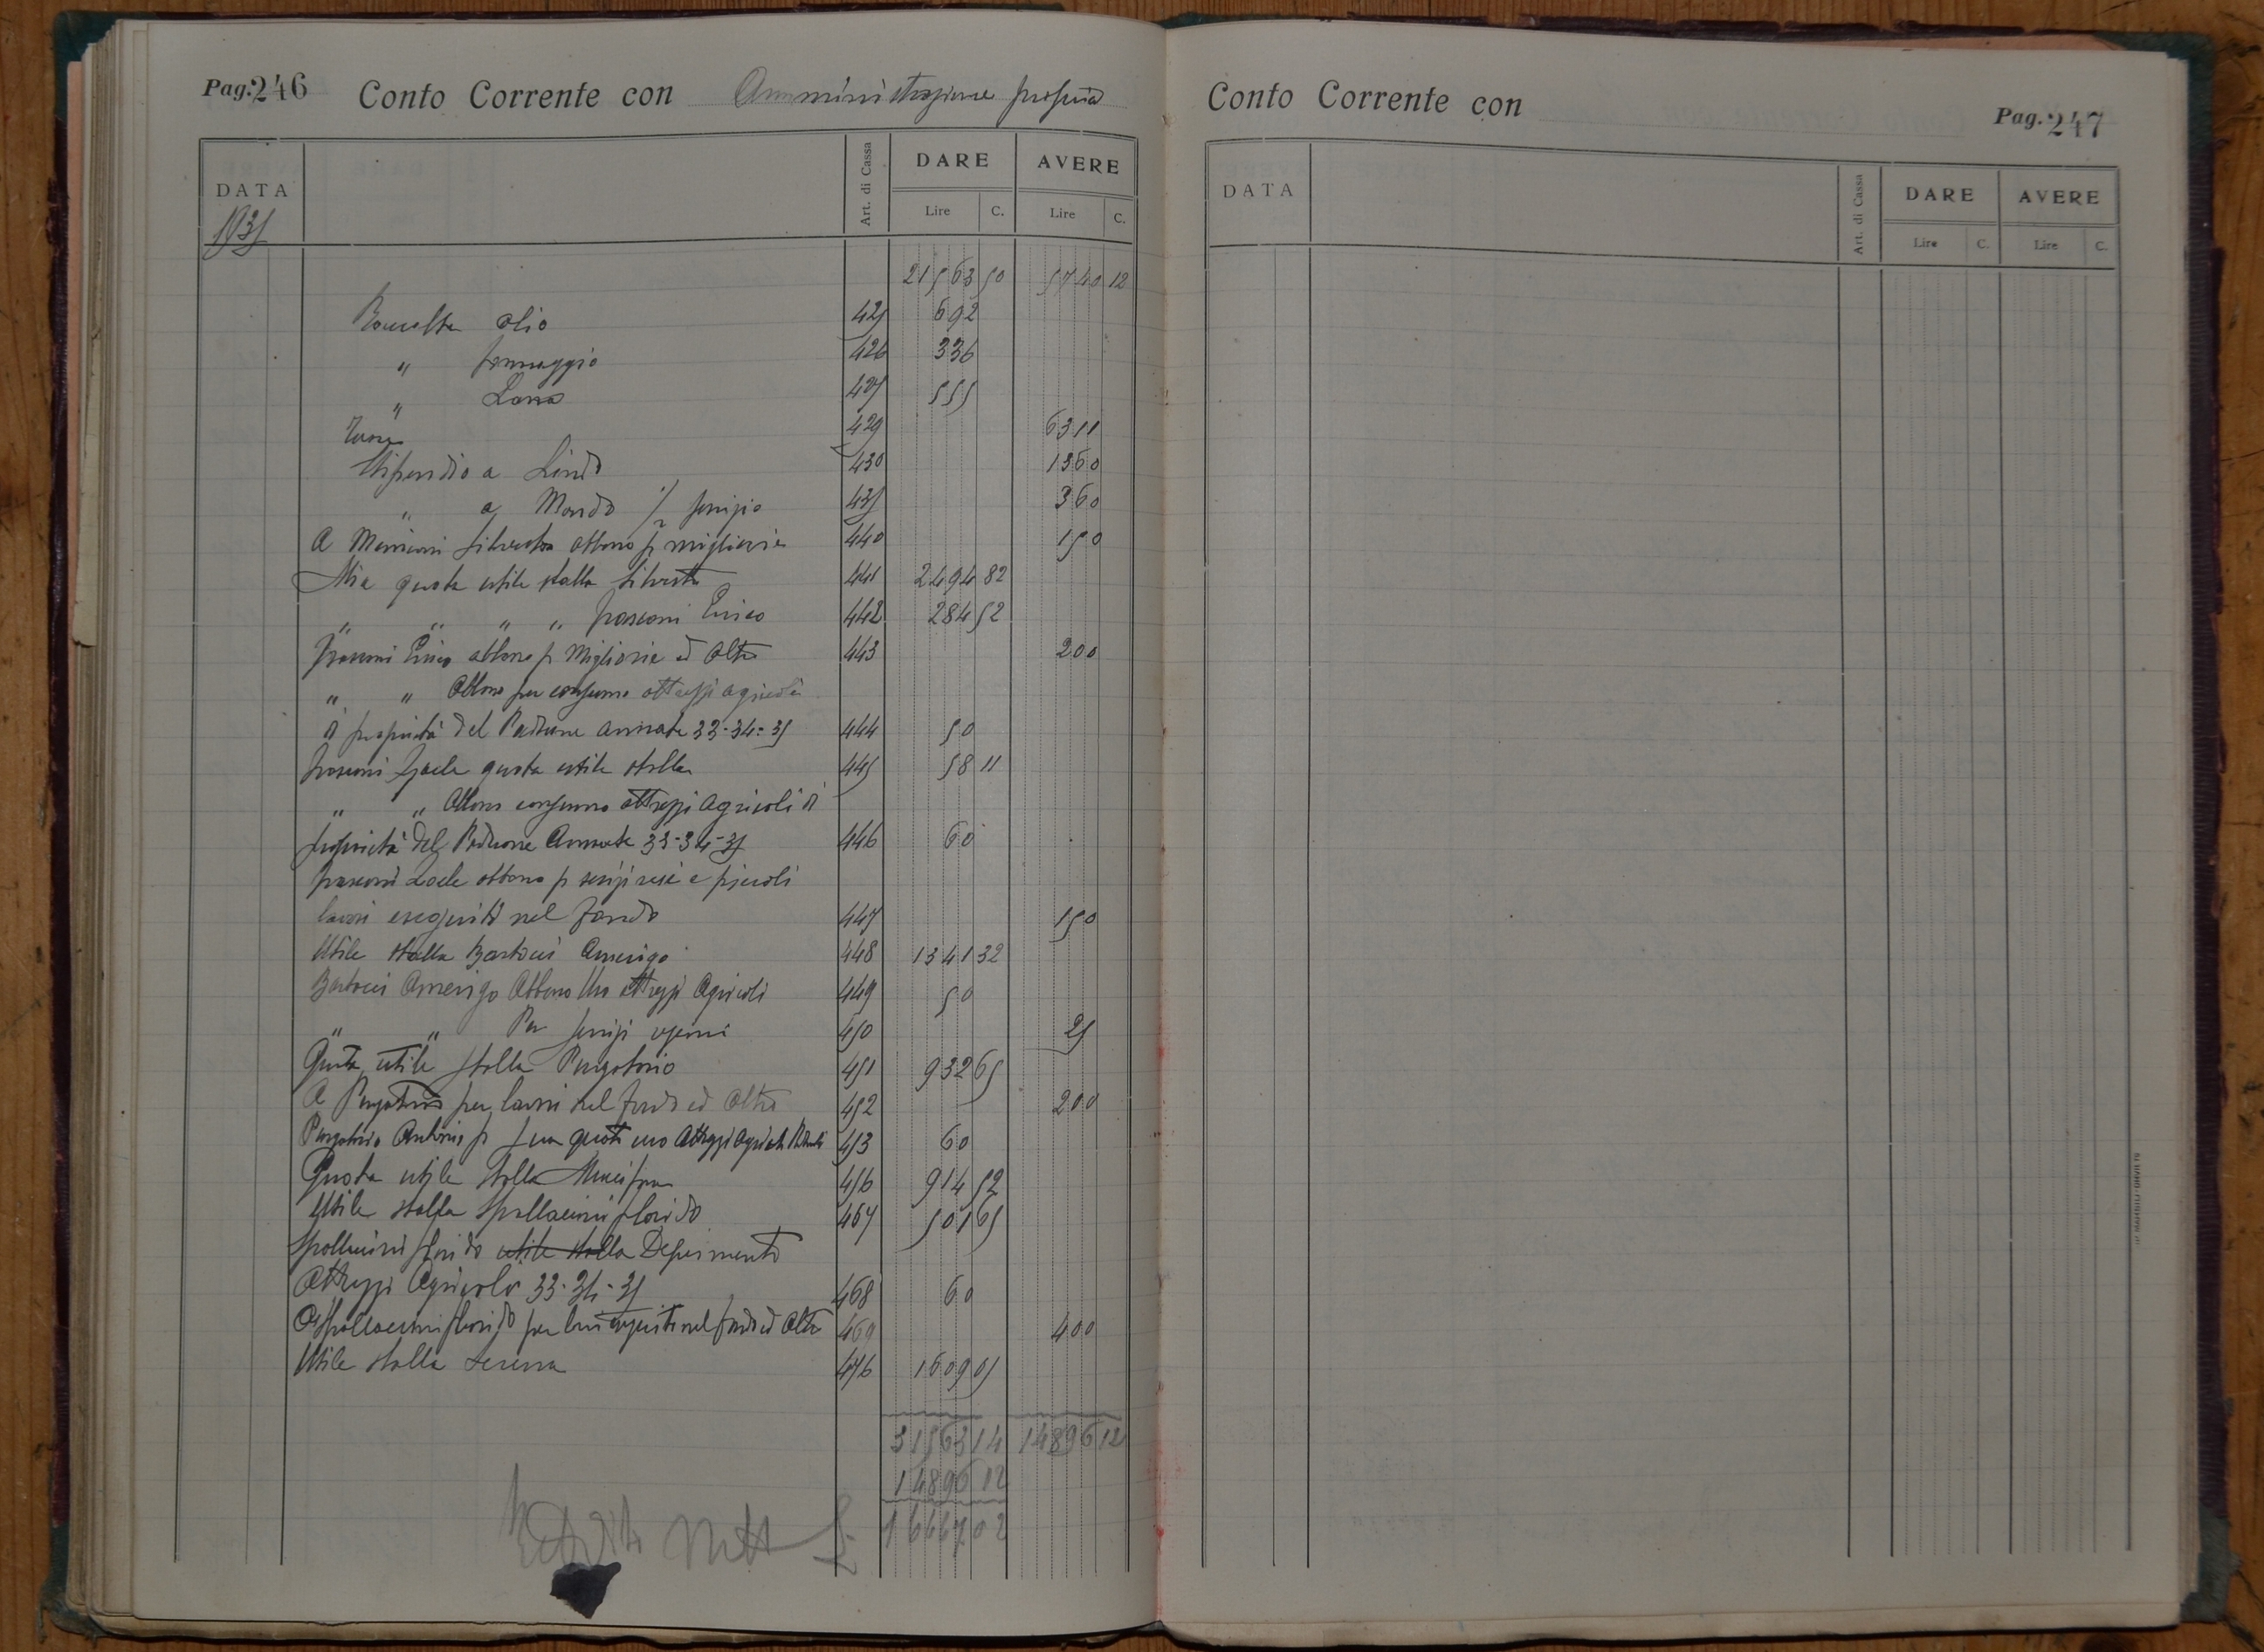 Pag. 246 Conto Corrente con Amministrazione propria
DATA Art. di Cassa DARE AVERE
Lire C. Lire C.
1935
21563 50 5740 12
Raccolta olio 425 692
" formaggio 426 336
" Lana 427 555
Tasse 429 6311
Stipendio a Lindo 430 1360
" a Mondo p servizio 435 360
A Silvestro abbono p migliorie 440 150
Mia quota utile stalla Silvestro 441 2494 82
" " " " frasconi Enrico 442 284 52
frasconi Enrico abbono p Migliorie ed Altro 443 200
" " Abbono per consumo attrezzi agricoli
di proprietà del Padrone annate 33-34-35 444 50
frasconi quota utile stalla 445 58 11
" " Abbono consumo attrezzi Agricoli di
proprietà del Padrone Annate 33-34-35 446 60
frasconi abbono p servizi resi e piccoli
lavori eseguiti nel fondo 447 150
Utile stalla Bartocci Amerigo 448 1341 32
Bartocci Amerigo Abbono Uso attrezzi Agricoli 449 50
" " Per servizi 450 25
Quota utile stalla Purgatorio 451 932 65
A Purgatorio per lavori nel fondo ed Altro 452 200
Purgatorio Antonio p sua quota uso Attrezzi Agricoli 453 60
Quota utile stalla 456 914 52
Utile stalla Spallaccini florido 467 501 65
Spallaccini florido utile stalla Deperimento
Attrezzi Agricoli 33-34-35 468 60
A Spallaccini florido per lavori eseguiti nel fondo ed Altro 469 400
Utile stalla Serena 476 1609 05
31563 14 14896 12
14896 12
16667 02
Netto £
Conto Corrente con Pag. 247
DATA Art. di Cassa DARE AVERE
Lire C. Lire C.